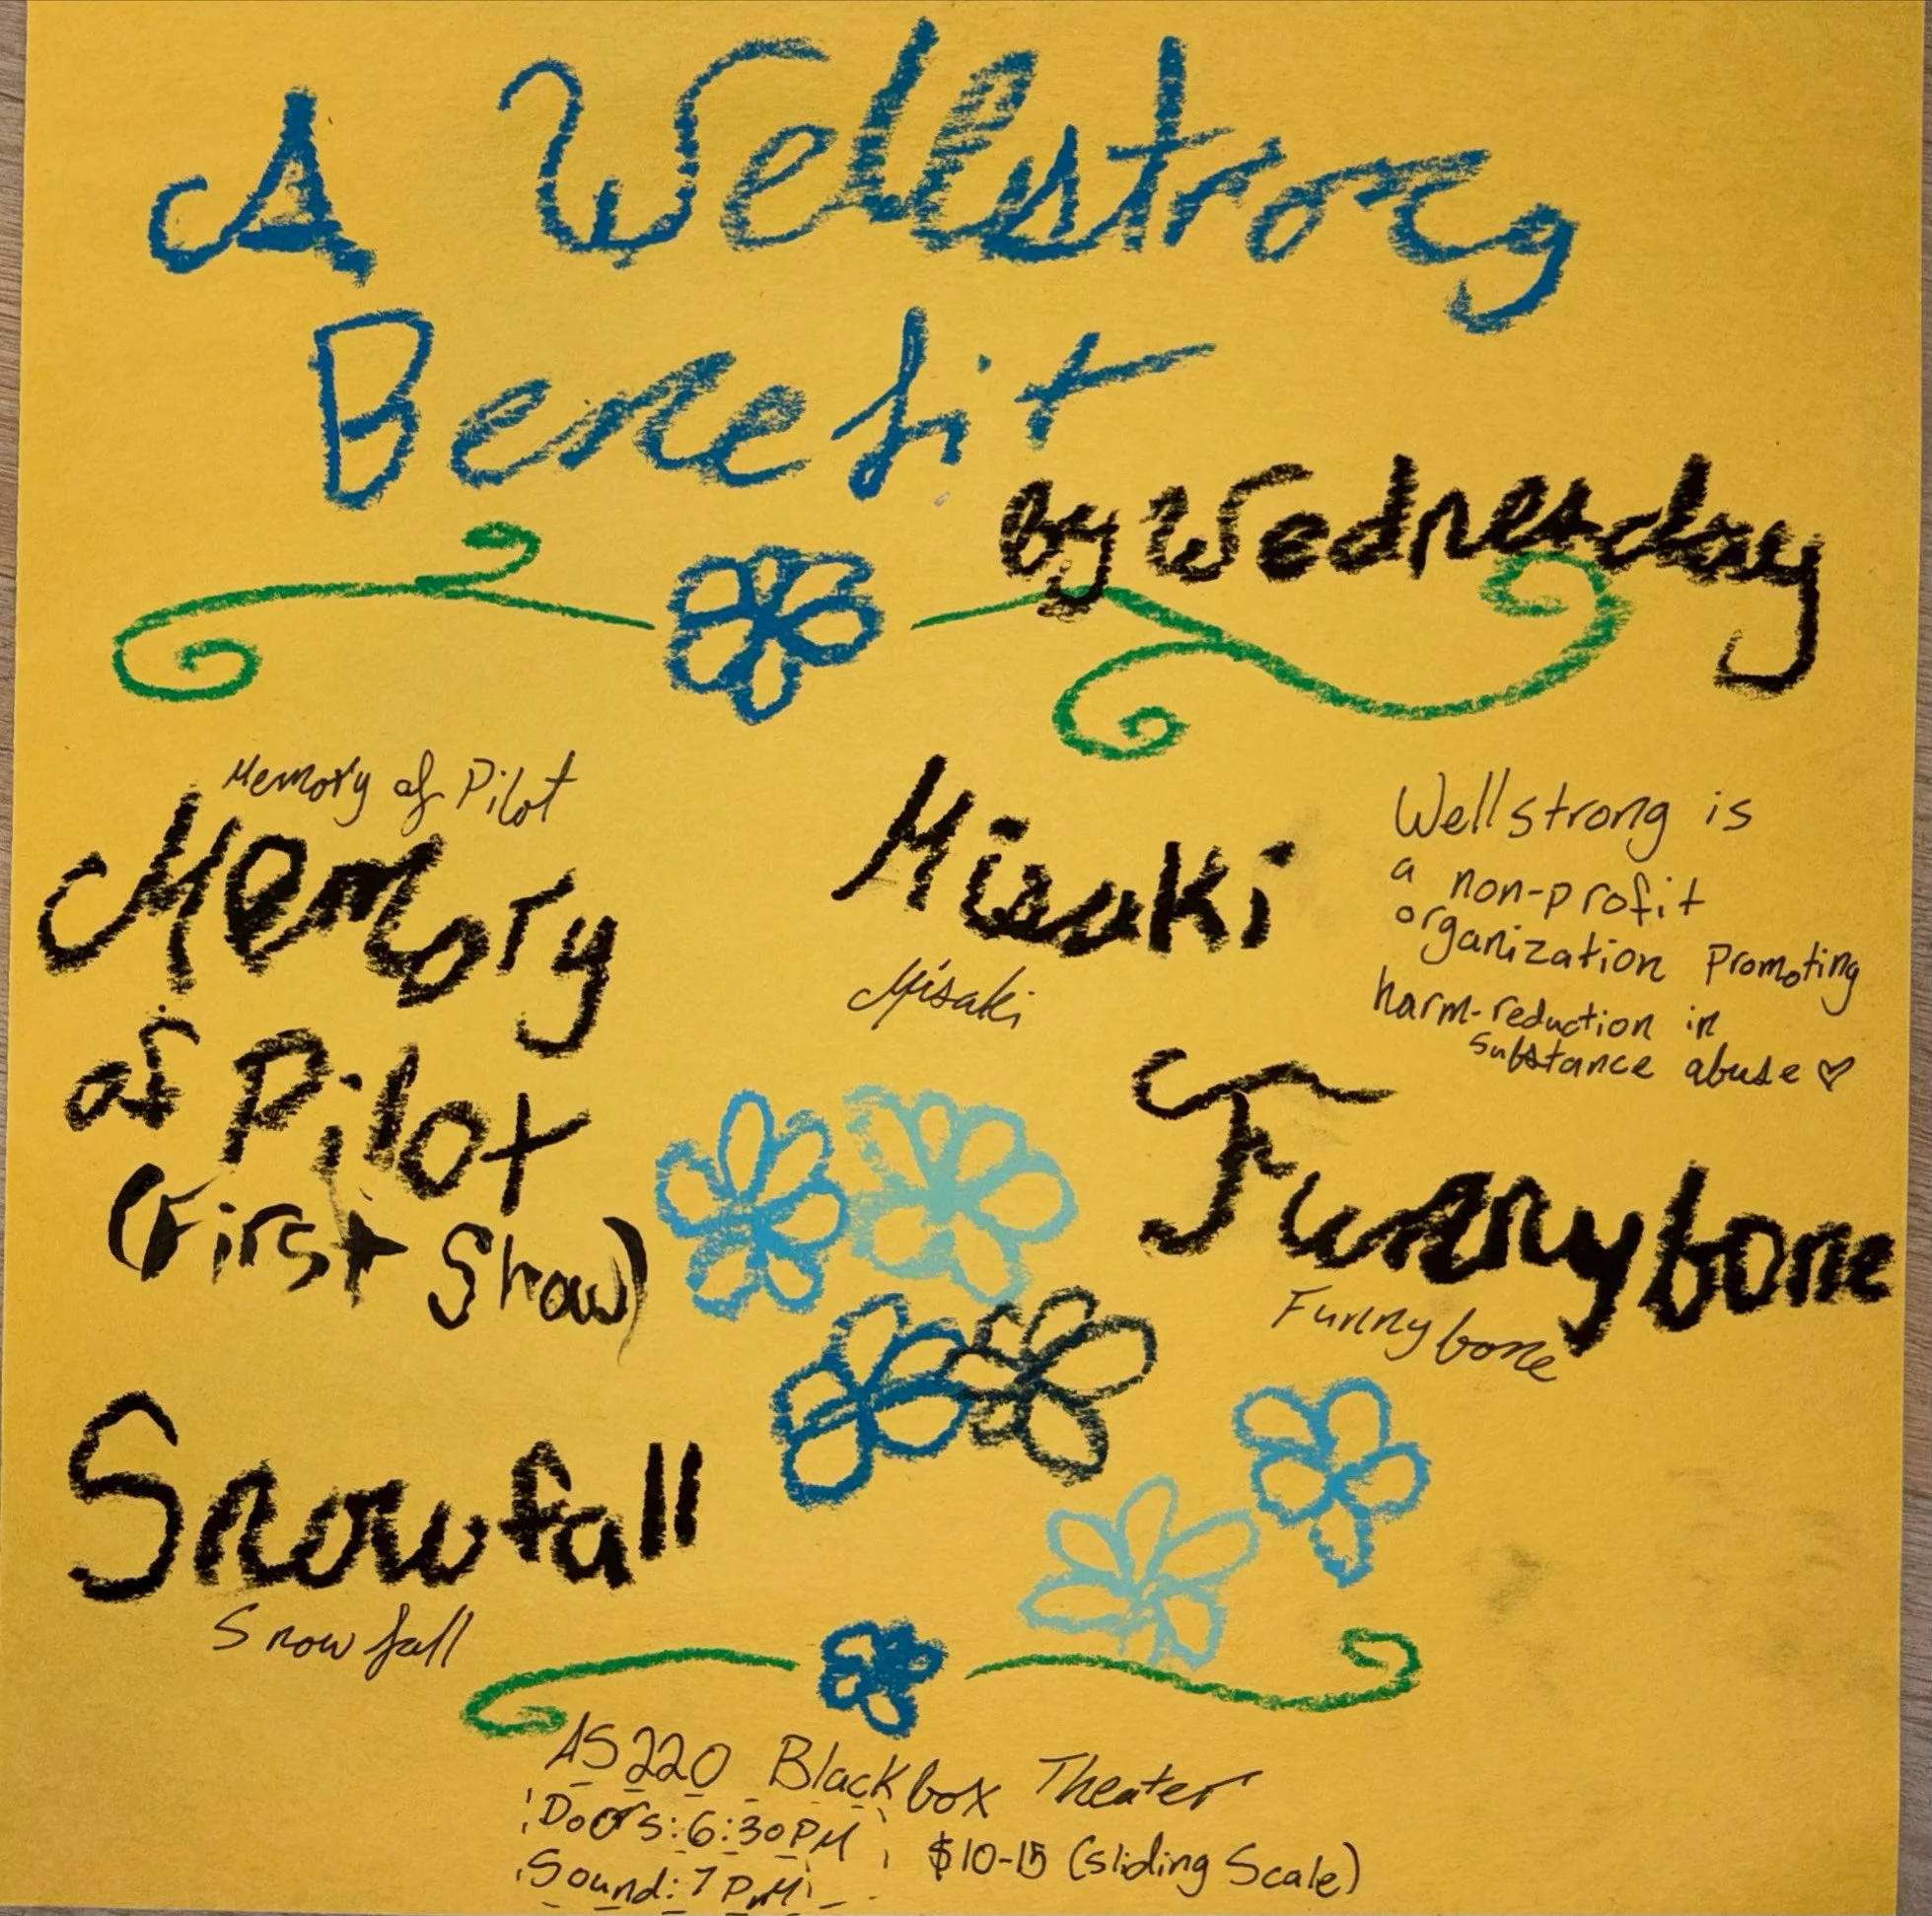 A Wellstrong
Benefit
by Wednesday
Memory of Pilot
Memory
of Pilot
(First Show)
Misaki
Misaki
Wellstrong is
a non-profit
organization Promoting
harm-reduction in
substance abuse ♡
Funnybone
Funnybone
Snowfall
Snowfall
AS220 Blackbox Theater
Doors: 6:30PM
$10-15 (Sliding Scale)
Sound: 7 PM